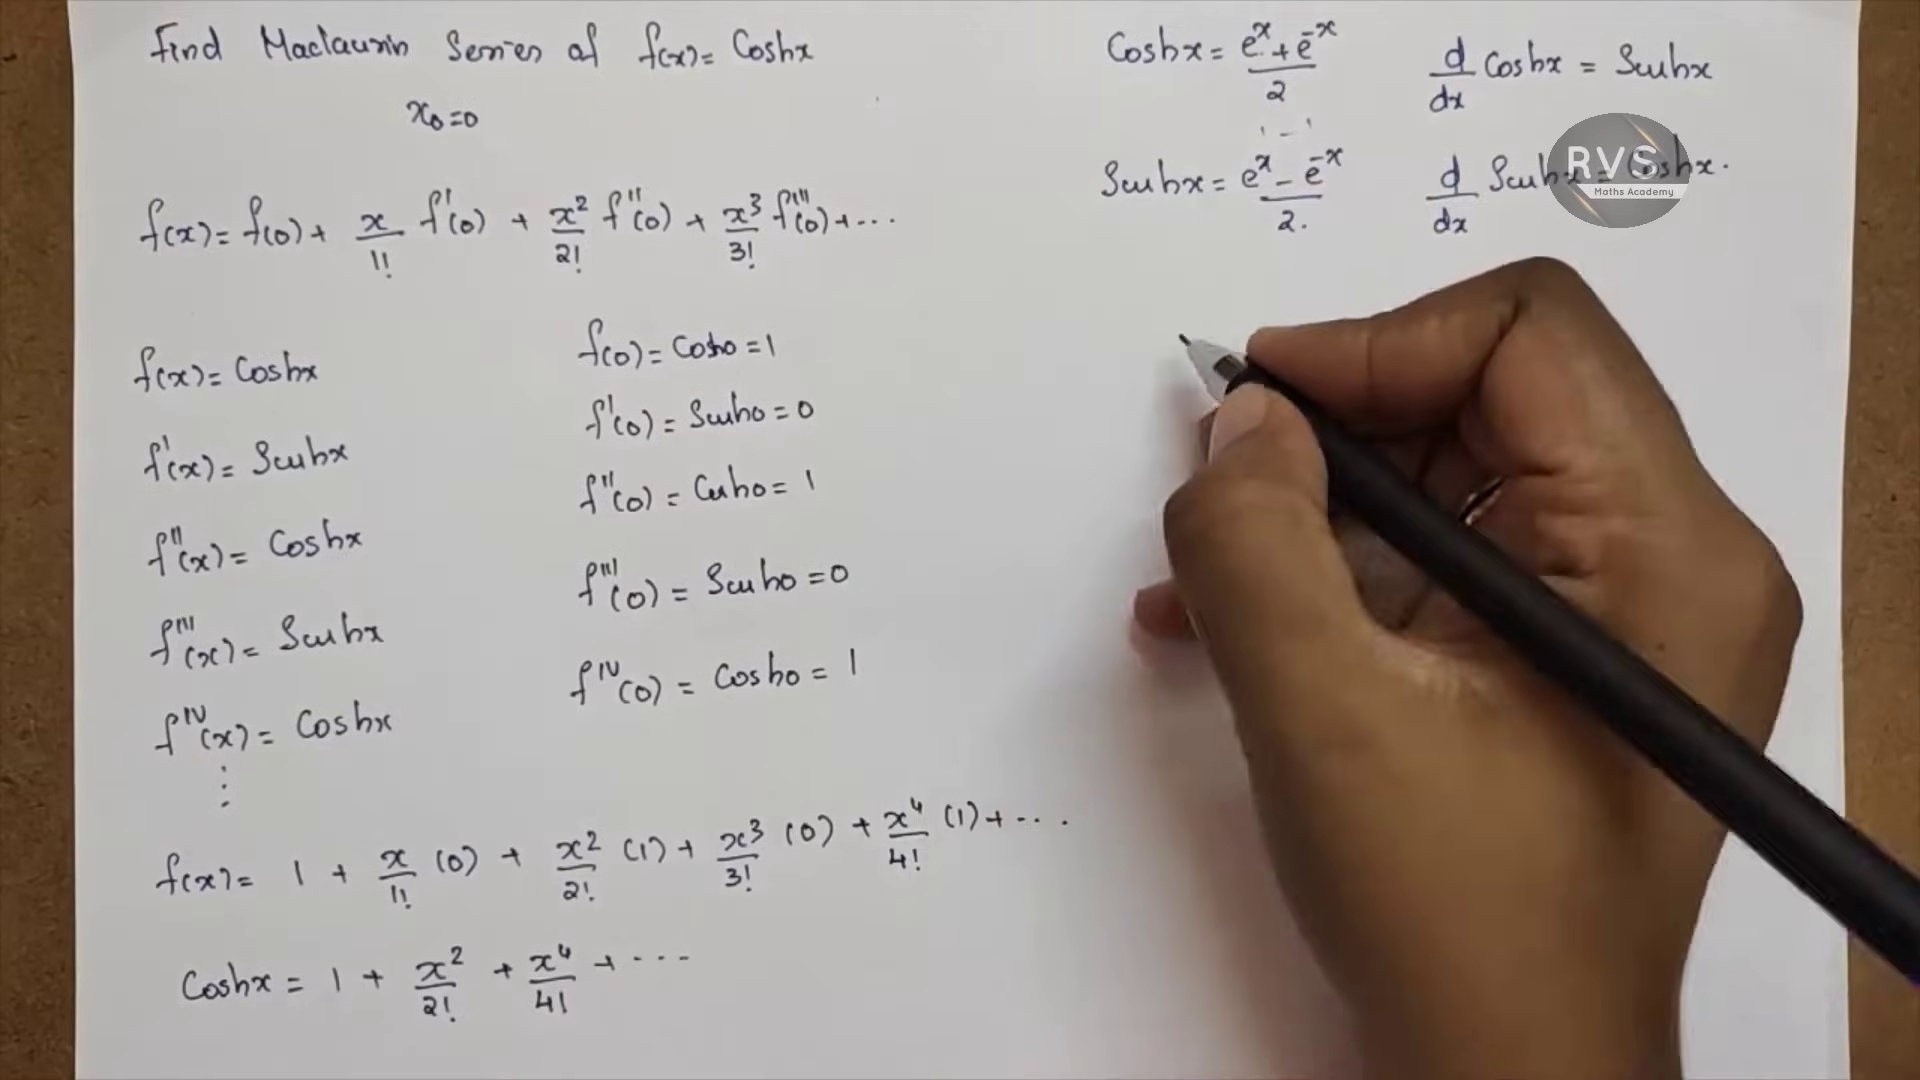 Find Maclaurin Series of f(x) = Coshx
x₀=0
f(x) = f(0) + x/1! f'(0) + x²/2! f''(0) + x³/3! f'''(0) + ...
f(x) = Coshx
f'(x) = Sinhx
f''(x) = Coshx
f'''(x) = Sinhx
f^IV(x) = Coshx
⋮
f(0) = Cosh0 = 1
f'(0) = Sinh0 = 0
f''(0) = Cosh0 = 1
f'''(0) = Sinh0 = 0
f^IV(0) = Cosh0 = 1
f(x) = 1 + x/1! (0) + x²/2! (1) + x³/3! (0) + x⁴/4! (1) + ...
Coshx = 1 + x²/2! + x⁴/4! + ...
Coshx = (e^x + e^-x)/2
d/dx Coshx = Sinhx
Sinhx = (e^x - e^-x)/2.
d/dx Sinhx = Coshx.
RVS
Maths Academy